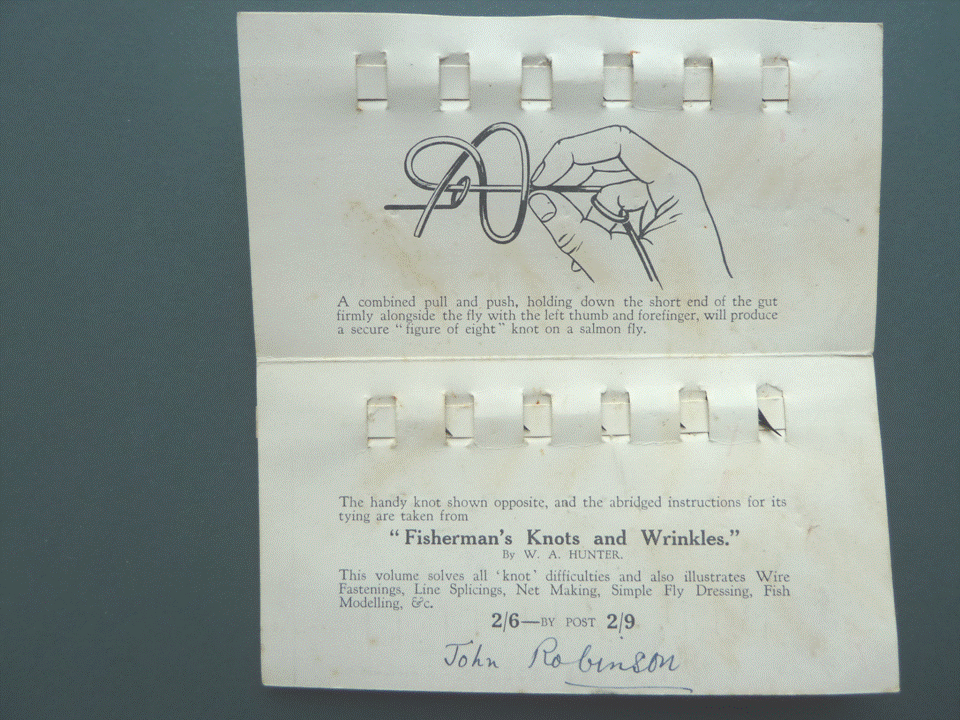 A combined pull and push, holding down the short end of the gut
firmly alongside the fly with the left thumb and forefinger, will produce
a secure “figure of eight” knot on a salmon fly.
The handy knot shown opposite, and the abridged instructions for its
tying are taken from
“Fisherman's Knots and Wrinkles.”
By W. A. HUNTER.
This volume solves all ‘knot’ difficulties and also illustrates Wire
Fastenings, Line Splicings, Net Making, Simple Fly Dressing, Fish
Modelling, &c.
2/6—BY POST 2/9
John Robinson